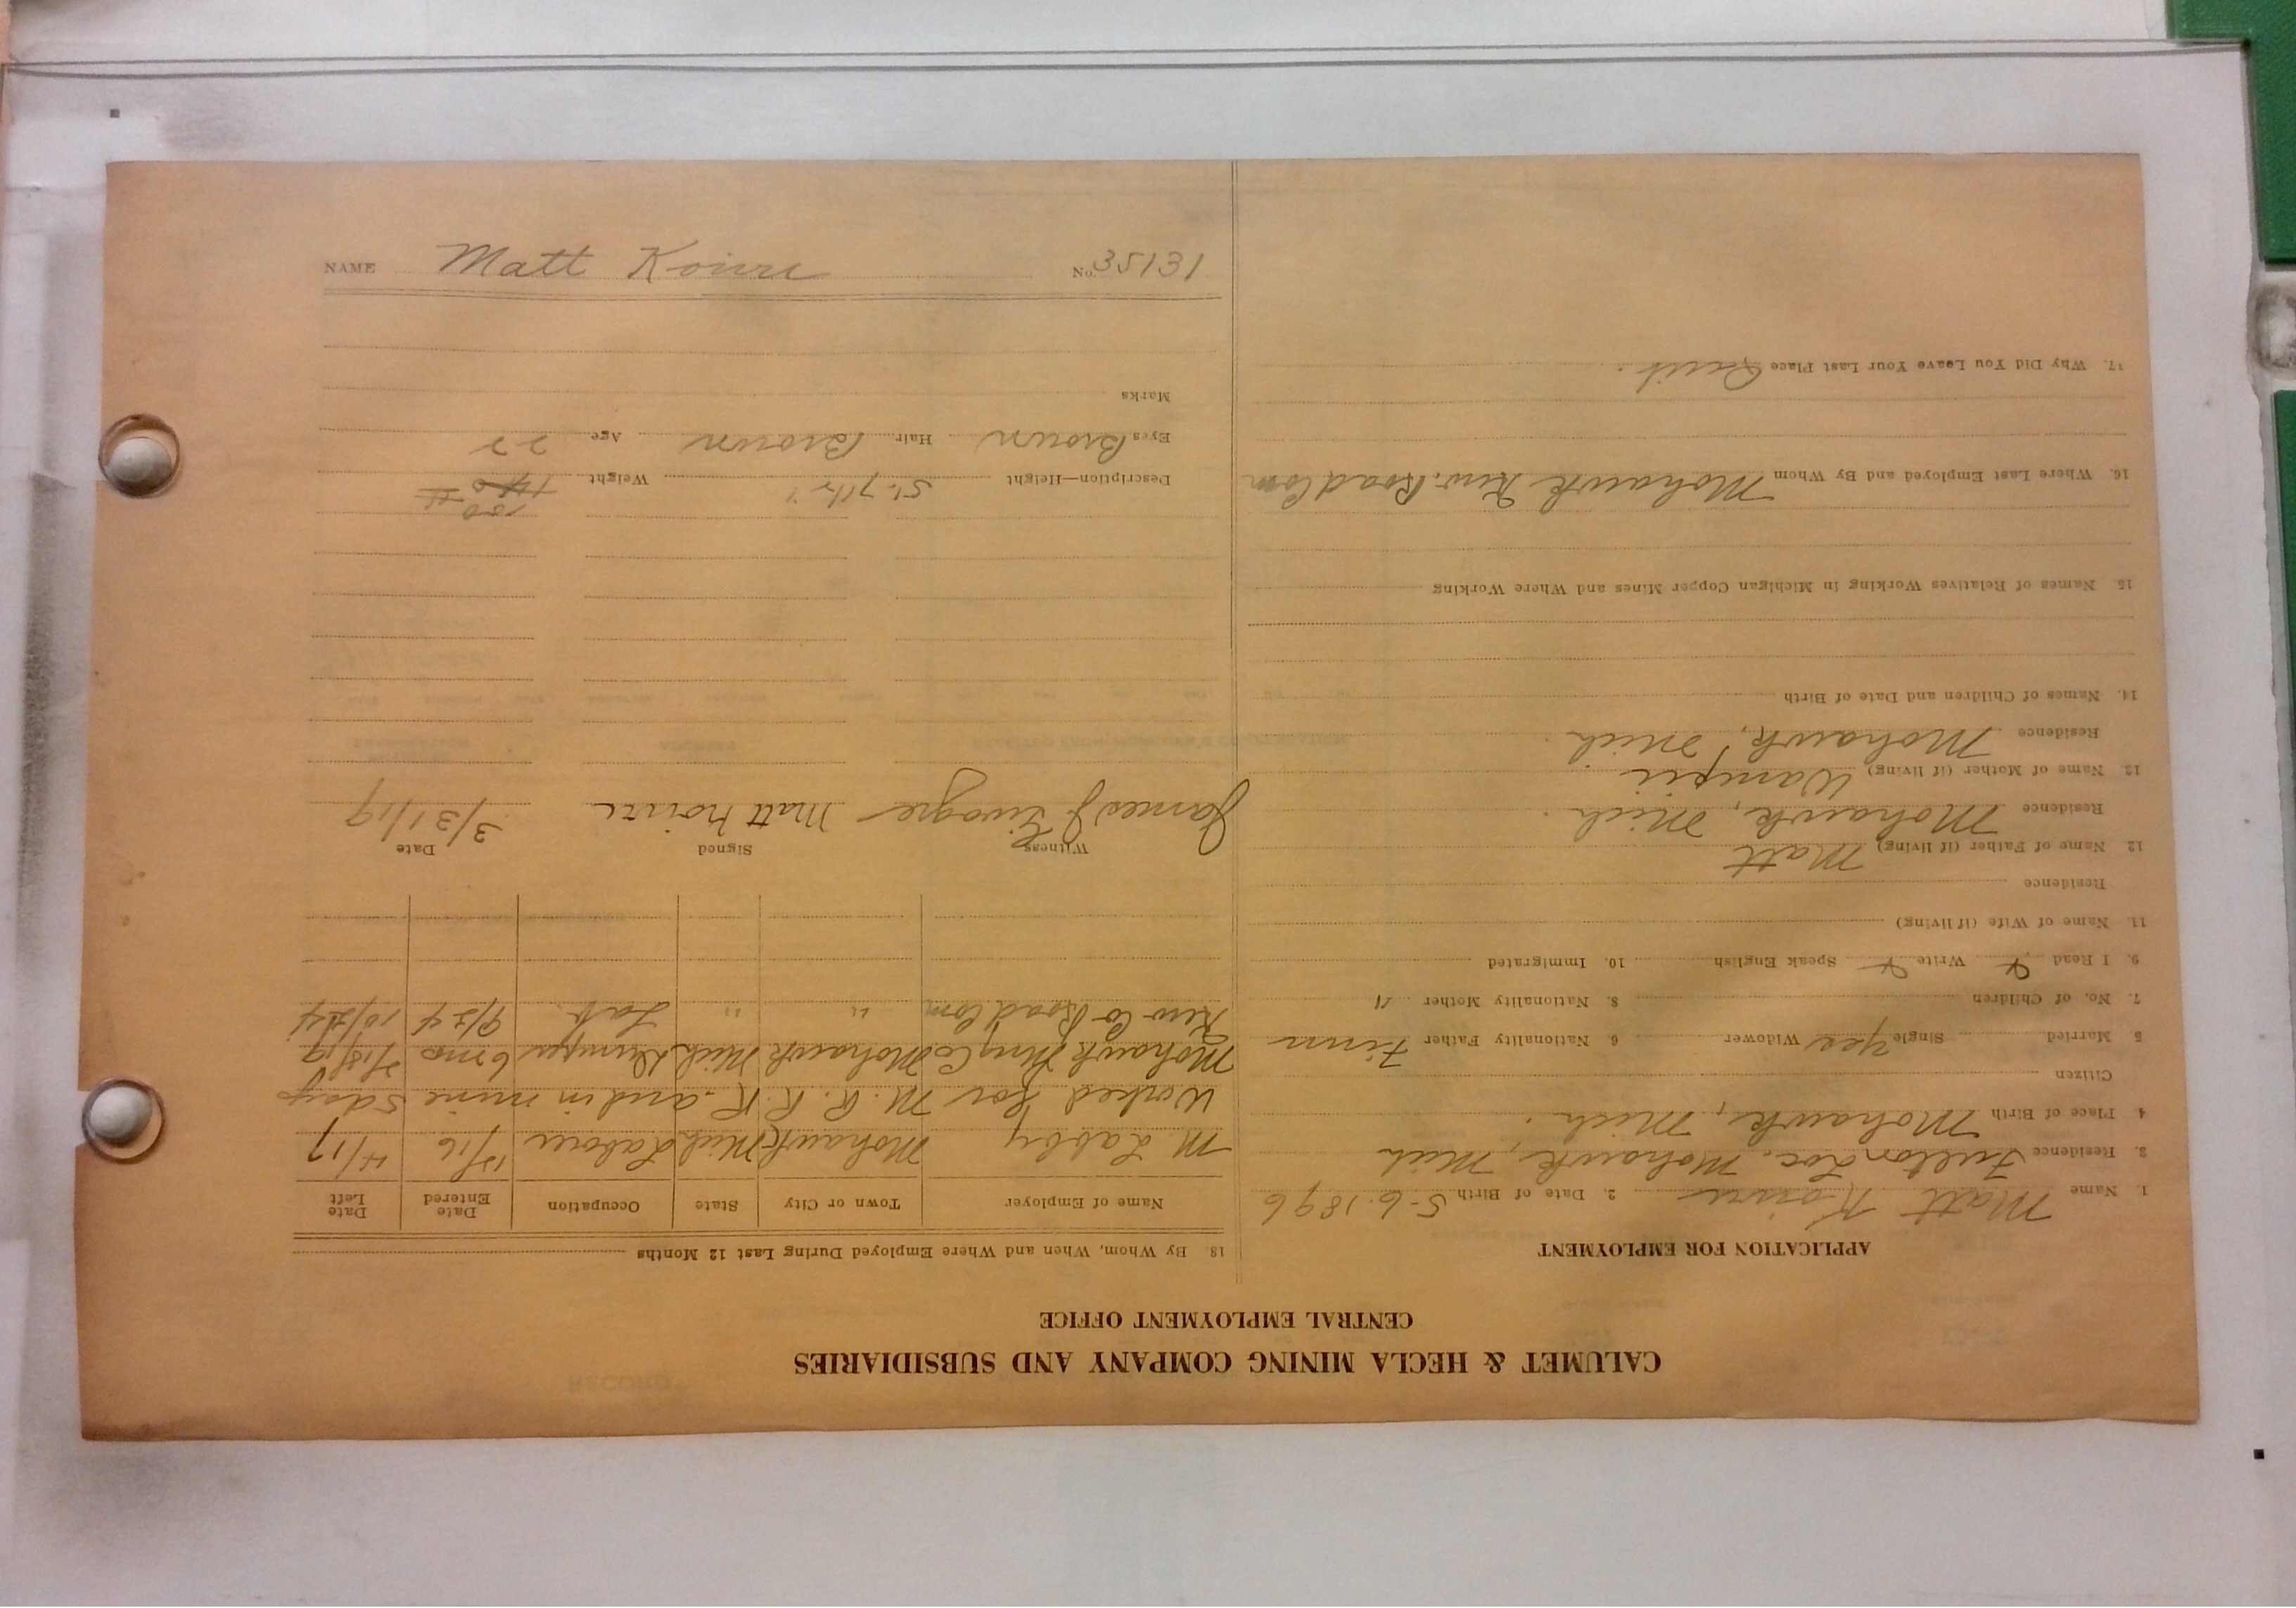 CALUMET & HECLA MINING COMPANY AND SUBSIDIARIES
CENTRAL EMPLOYMENT OFFICE
APPLICATION FOR EMPLOYMENT
1. Name Matt Koivu 2. Date of Birth 5-6-1896
3. Residence Fulton Loc. Mohawk, Mich
4. Place of Birth Mohawk, Mich.
Citizen
5 Married Single yes Widower 6. Nationality Father Finn
7. No. of Children 8. Nationality Mother "
9. I Read Write Speak English 10. Immigrated
11. Name of Wife (if living)
Residence
12 Name of Father (if living) Matt
Residence Mohawk, Mich.
13. Name of Mother (if living)
Residence Mohawk, Mich.
14. Names of Children and Date of Birth
15. Names of Relatives Working in Michigan Copper Mines and Where Working
16. Where Last Employed and By Whom Mohawk Kew. Road Com
17. Why Did You Leave Your Last Place Quit.
18. By Whom, When and Where Employed During Last 12 Months
Name of Employer Town or City State Occupation Date Entered Date Left
M. Labby Mohawk Mich Laborer /16 4/17
Worked for M. R. R. R. and in mine 5 days
Mohawk Mng Co Mohawk Mich 6 mo /18/19
Kew Co Road Com " " Lab. 9/24 10/24
Witness Signed Date
James J. Matt Koivu 3/31/19
150
Description—Height 5' 7 1/2" Weight 140 #
Eyes Brown Hair Brown Age 22
Marks
NAME Matt Koivu No. 35131